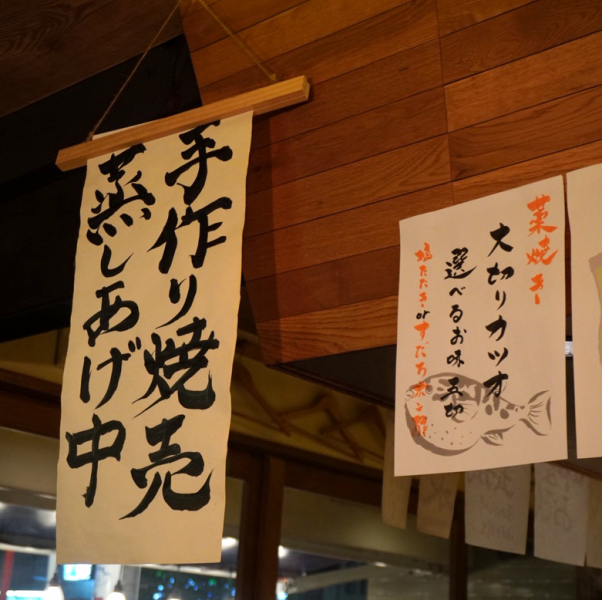 手作り焼売
蒸しあげ中
藁焼き
大切りカツオ
選べるお味 五切
塩たたきorすだちポン酢